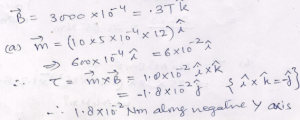 B⃗ = 3000 × 10⁻⁴ = .3T k̂
(a) m⃗ = (10 × 5 × 10⁻⁴ × 12) î
⇒ 600 × 10⁻⁴ î = 6 × 10⁻² î
∴ τ = m⃗ × B⃗ = 1.8 × 10⁻² î × k̂
= -1.8 × 10⁻² ĵ { î × k̂ = -ĵ }
∴ 1.8 × 10⁻² Nm along negative Y axis